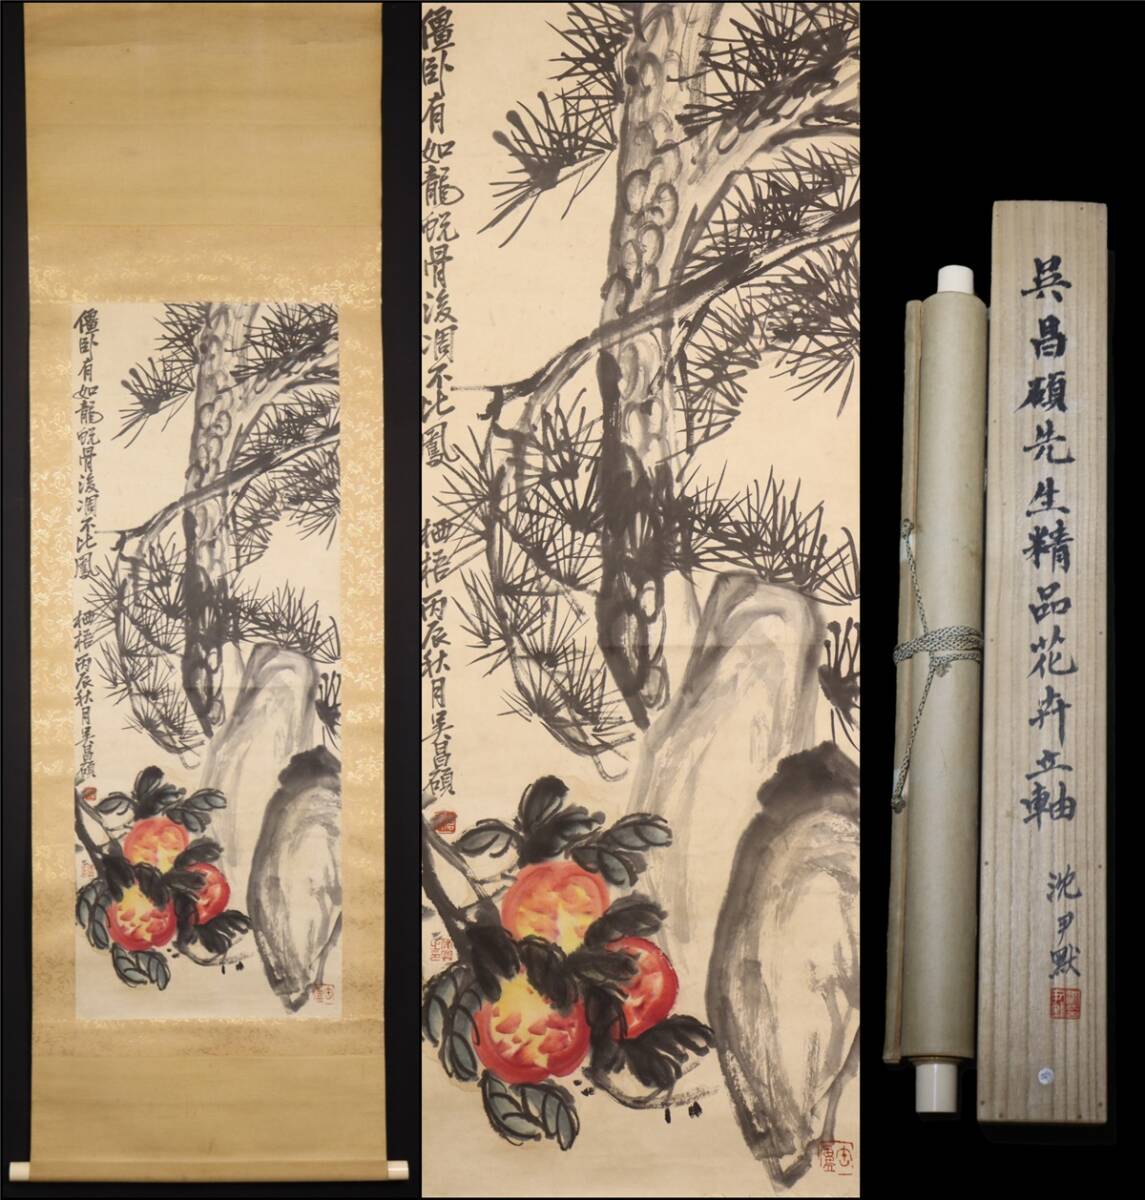 僵卧有如龍蛻骨後凋不比鳳
栖梧丙辰秋月吴昌碩
僵卧有如龍蛻骨後凋不比鳳
栖梧丙辰秋月吴昌碩
吳昌碩先生精品花卉立軸
沈尹默